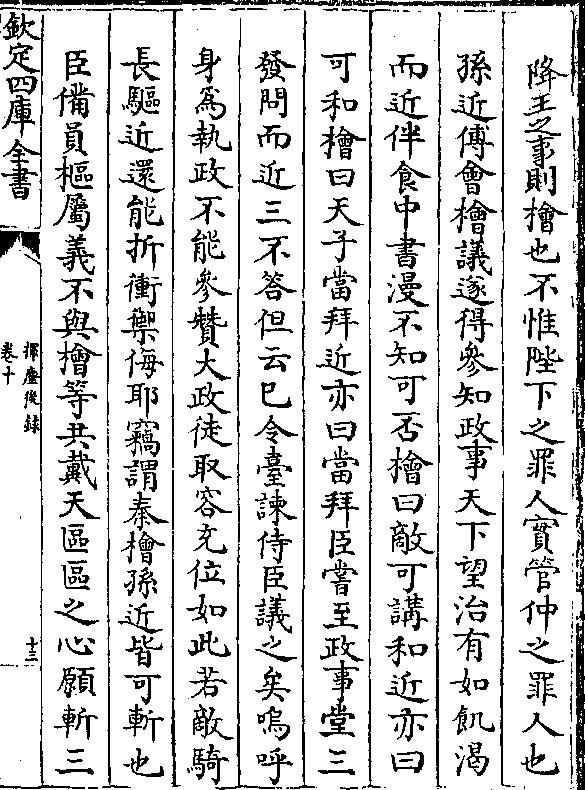 降王之事則檜也不惟陛下之罪人實管仲之罪人也
孫近傅會檜議遂得參知政事天下望治有如飢渴
而近伴食中書漫不知可否檜曰敵可講和近亦曰
可和檜曰天子當拜近亦曰當拜臣嘗至政事堂三
發問而近三不答但云已令臺諫侍臣議之矣嗚呼
身為執政不能參贊大政徒取容充位如此若敵騎
長驅近還能折衝禦侮耶竊謂秦檜孫近皆可斬也
臣備員樞屬義不與檜等共戴天區區之心願斬三
欽定四庫全書
揮麈後錄
卷十
十三